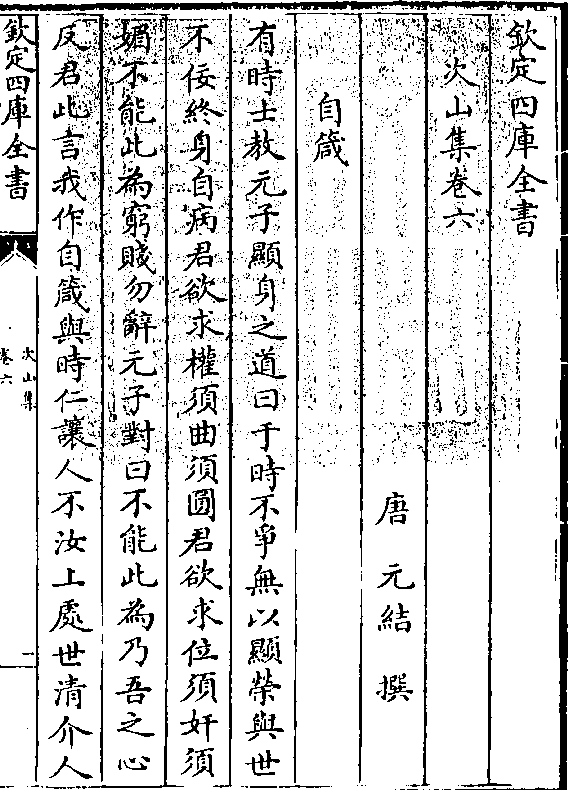 欽定四庫全書
次山集卷六
唐 元結 撰
自箴
有時士教元子顯身之道曰于時不爭無以顯榮與世
不佞終身自病君欲求權須曲須圓君欲求位須奸須
媚不能此為窮賤勿辭元子對曰不能此為乃吾之心
反君此言我作自箴與時仁讓人不汝上處世清介人
欽定四庫全書
次山集
卷六
一